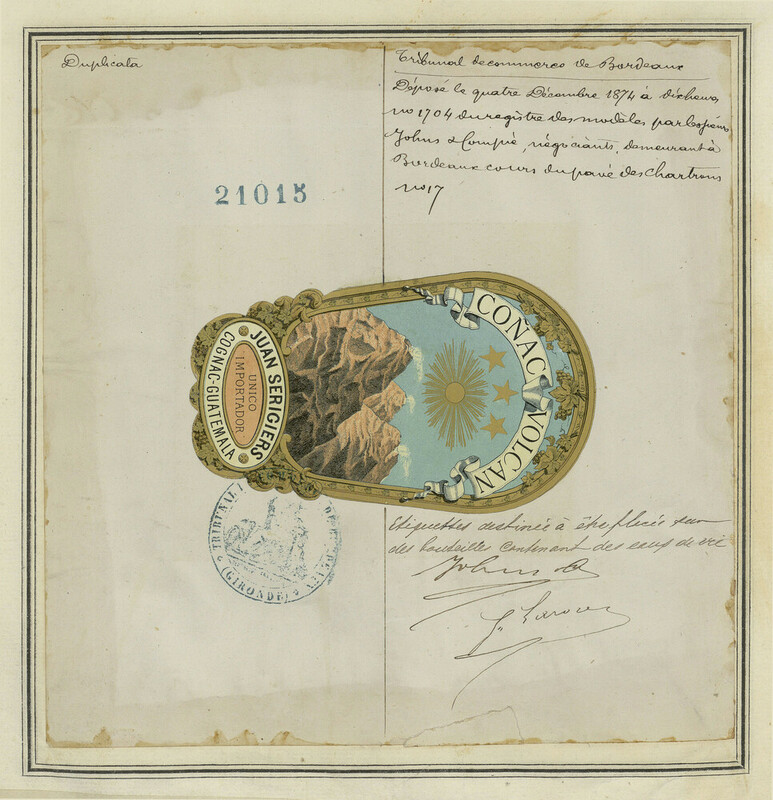 Duplicata
Tribunal de commerce de Bordeaux
Déposé le quatre Décembre 1874 à dix heures
no 1704 du registre des modèles par les sieurs
Johns & Compie, négociants, demeurant à
Bordeaux cours du pavé des Chartrons
no 17
21015
COÑAC VOLCAN
JUAN SERIGIERS
UNICO
IMPORTADOR
COGNAC-GUATEMALA
TRIBUNAL
(GIRONDE)
Etiquettes destinée à être placés sur
des bouteilles contenant des eaux de vie
Johns